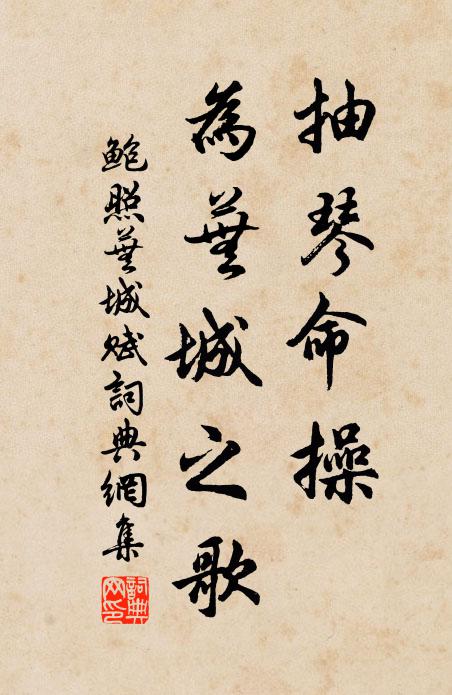 抽琴命操
為蕪城之歌
鮑照蕪城賦詞典網集
詞典網印